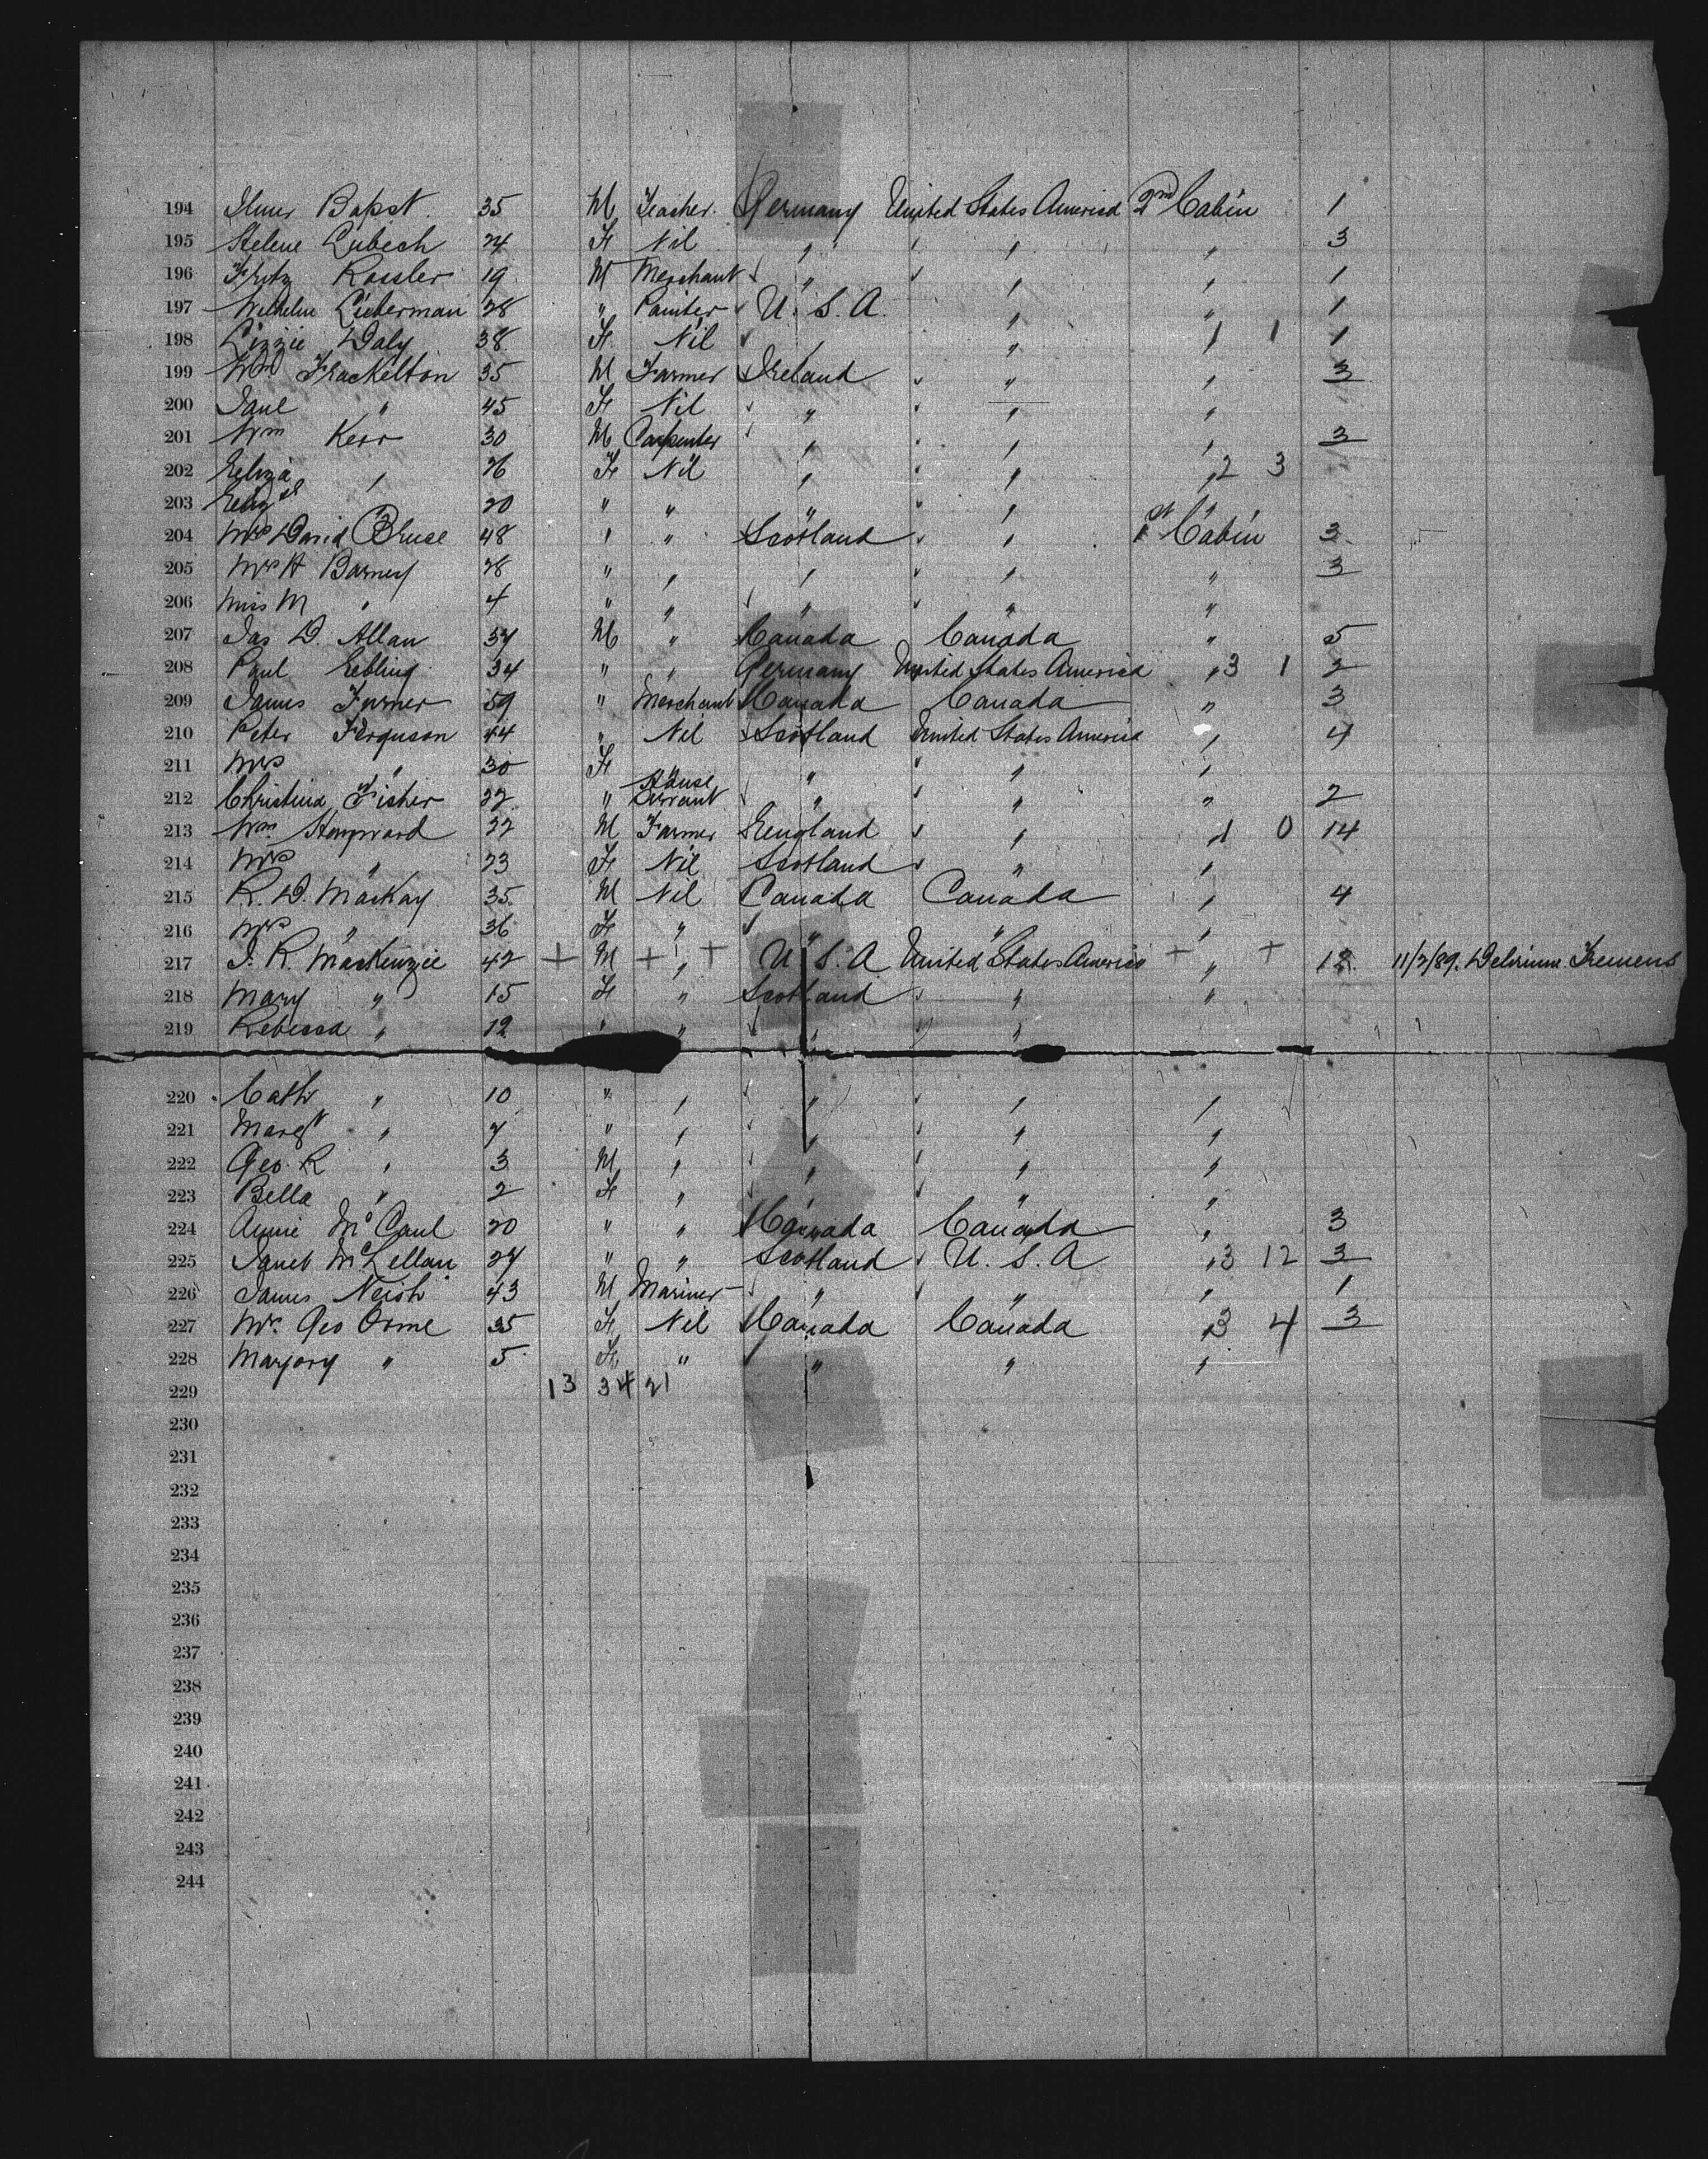 194 Bapst. 35 M Teacher. Germany United States America 2nd Cabin 1
195 Helene Lubech 24 F Nil " " " 3
196 Fritz Rossler 19 M Merchant " " " 1
197 Wilhelm Lieberman 28 " Painter U.S.A. " " 1
198 Lizzie Daly 38 F. Nil " " 1 1 1
199 Wm Frackelton 35 M Farmer Ireland " " 3
200 Jane " 45 F Nil " " "
201 Wm Kerr 30 M Carpenter " " " 3
202 Eliza " 26 F Nil " " " 2 3
203 Elizth " 20 " " " " "
204 Mrs David Bruce 48 " " Scotland " 1st Cabin 3
205 Mrs H Barney 28 " " " " " 3
206 Miss M " 4 " " " " "
207 Jas D. Allan 37 M " Canada Canada " 5
208 Paul Eebling 34 " " Germany United States America " 3 1 2
209 James Turner 59 " Merchant Canada Canada " 3
210 Peter Ferguson 44 " Nil Scotland United States America " 4
211 Mrs " 30 F " " "
212 Christina Fisher 22 " House Servant " " " 2
213 Wm Haywood 22 M Farmer England " " 1 0 14
214 Mrs " 23 F Nil Scotland " "
215 R. D. MacKay 35 M Nil Canada Canada " 4
216 Mrs " 36 F " " " "
217 J. R. MacKenzie 42 + M + " + U.S.A United States America + " + 12 11/2/89. Delirium Tremens
218 Mary " 15 F " Scotland " "
219 Rebecca " 12 " " " "
220 Cath " 10 " " " " "
221 Margt " 7 " " " " "
222 Geo. R " 3 M " " " "
223 Bella " 2 F " " " "
224 Annie McCaul 20 " " Canada Canada " 3
225 Janet McLellan 27 " " Scotland U.S.A " 3 12 3
226 James Neish 43 M Mariner " " " 1
227 Mrs. Geo Orme 35 F Nil Canada Canada " 3 4 3
228 Marjory " 5 F " " " "
229 13 34 21
230
231
232
233
234
235
236
237
238
239
240
241
242
243
244